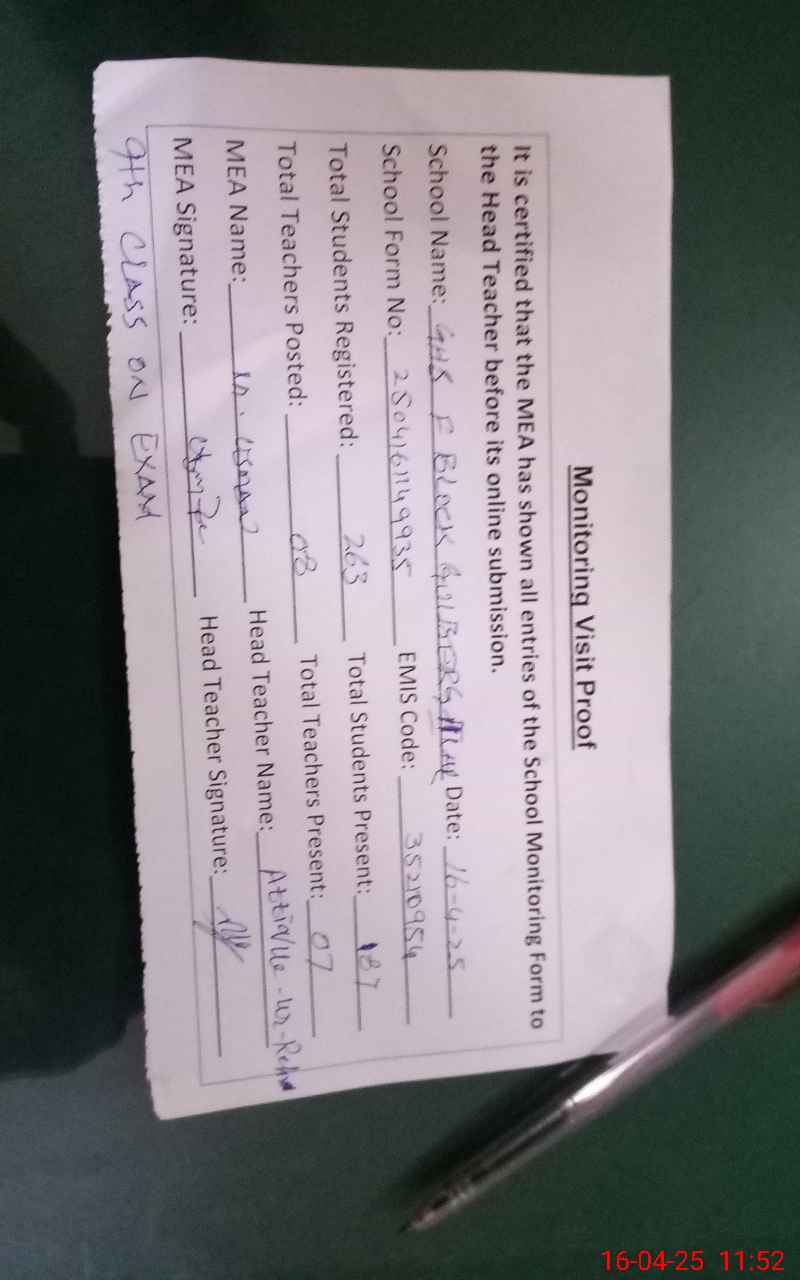 Monitoring Visit Proof
It is certified that the MEA has shown all entries of the School Monitoring Form to
the Head Teacher before its online submission.
School Name: GHS F BLOCK GULBERG Date: 16-4-25
School Form No: 2504161149935 EMIS Code: 35210954
Total Students Registered: 263 Total Students Present: 187
Total Teachers Posted: 08 Total Teachers Present: 07
MEA Name: Head Teacher Name: Attiq
MEA Signature: Head Teacher Signature:
9th CLASS ON EXAM
16-04-25 11:52